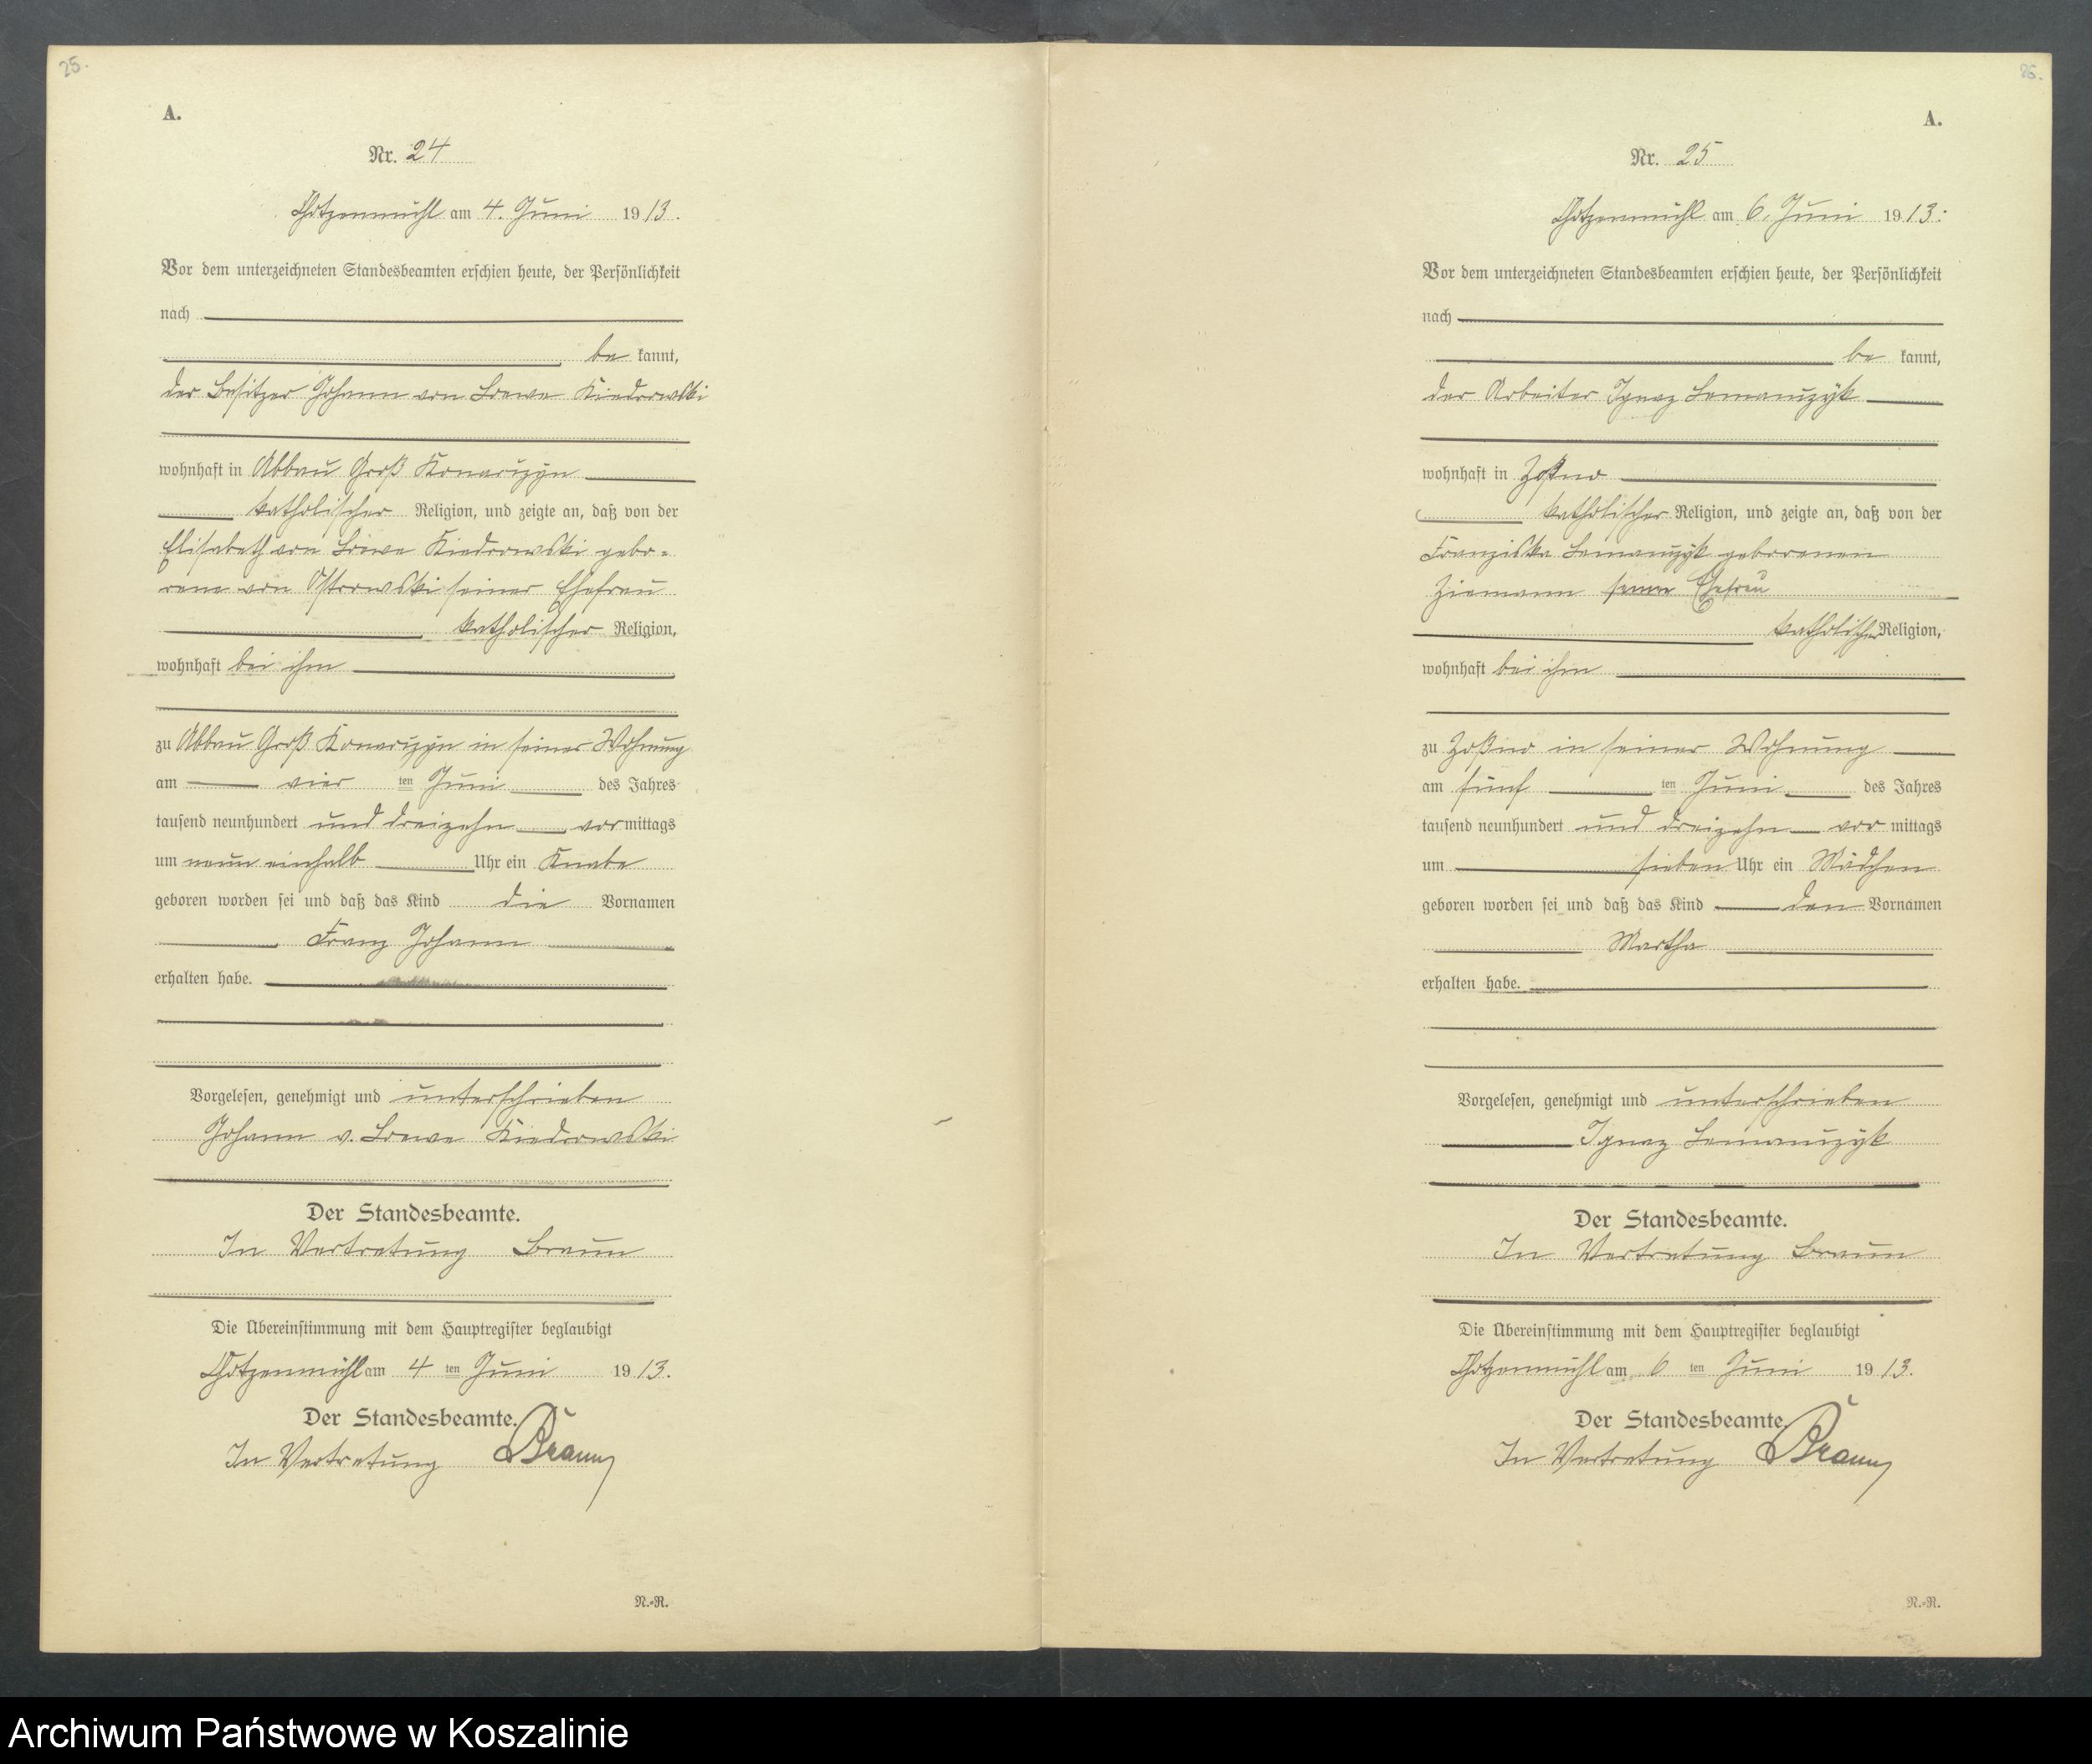 25.
A.
Nr. 24
Chotzenmühl am 4. Juni 1913.
Vor dem unterzeichneten Standesbeamten erschien heute, der Persönlichkeit
nach
be kannt,
der Besitzer Johann von Loewe Kiedrowski
wohnhaft in Abbau Groß Konarczyn
katholischer Religion, und zeigte an, daß von der
Elisabeth von Loewe Kiedrowski gebo-
rene von Ostrowski seiner Ehefrau
katholischer Religion,
wohnhaft bei ihm
zu Abbau Groß Konarczyn in seiner Wohnung
am vier ten Juni des Jahres
tausend neunhundert und dreizehn vor mittags
um neun einhalb Uhr ein Knabe
geboren worden sei und daß das Kind die Vornamen
Franz Johann
erhalten habe.
Vorgelesen, genehmigt und unterschrieben
Johann v. Loewe Kiedrowski
Der Standesbeamte.
In Vertretung Braun
Die Übereinstimmung mit dem Hauptregister beglaubigt
Chotzenmühl am 4 ten Juni 1913.
Der Standesbeamte.
In Vertretung Braun
N.-R.
A.
Nr. 25
Chotzenmühl am 6. Juni 1913.
Vor dem unterzeichneten Standesbeamten erschien heute, der Persönlichkeit
nach
be kannt,
der Arbeiter Ignaz Lemanczyk
wohnhaft in
katholischer Religion, und zeigte an, daß von der
Franziska Lemanczyk geborenen
Ziemann seiner Ehefrau
katholischer Religion,
wohnhaft bei ihm
zu in seiner Wohnung
am fünf ten Juni des Jahres
tausend neunhundert und dreizehn vor mittags
um sieben Uhr ein Mädchen
geboren worden sei und daß das Kind den Vornamen
Martha
erhalten habe.
Vorgelesen, genehmigt und unterschrieben
Ignaz Lemanczyk
Der Standesbeamte.
In Vertretung Braun
Die Übereinstimmung mit dem Hauptregister beglaubigt
Chotzenmühl am 6 ten Juni 1913.
Der Standesbeamte.
In Vertretung Braun
N.-R.
Archiwum Państwowe w Koszalinie